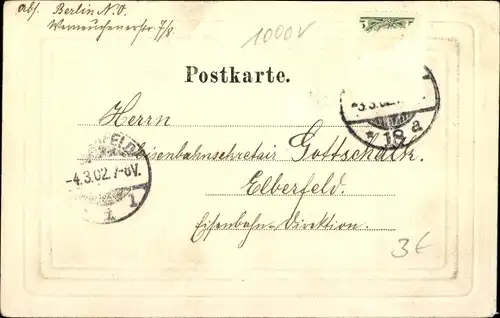 abs. Berlin N.O.
Werneuchenerstr. 7/8
1000v
Postkarte.
Herrn
Eisenbahnsecretair Gottschalk.
Elberfeld.
Eisenbahn-Direktion.
-3.3.02.7
* 18 a
-4.3.02.7-8V.
1
3€